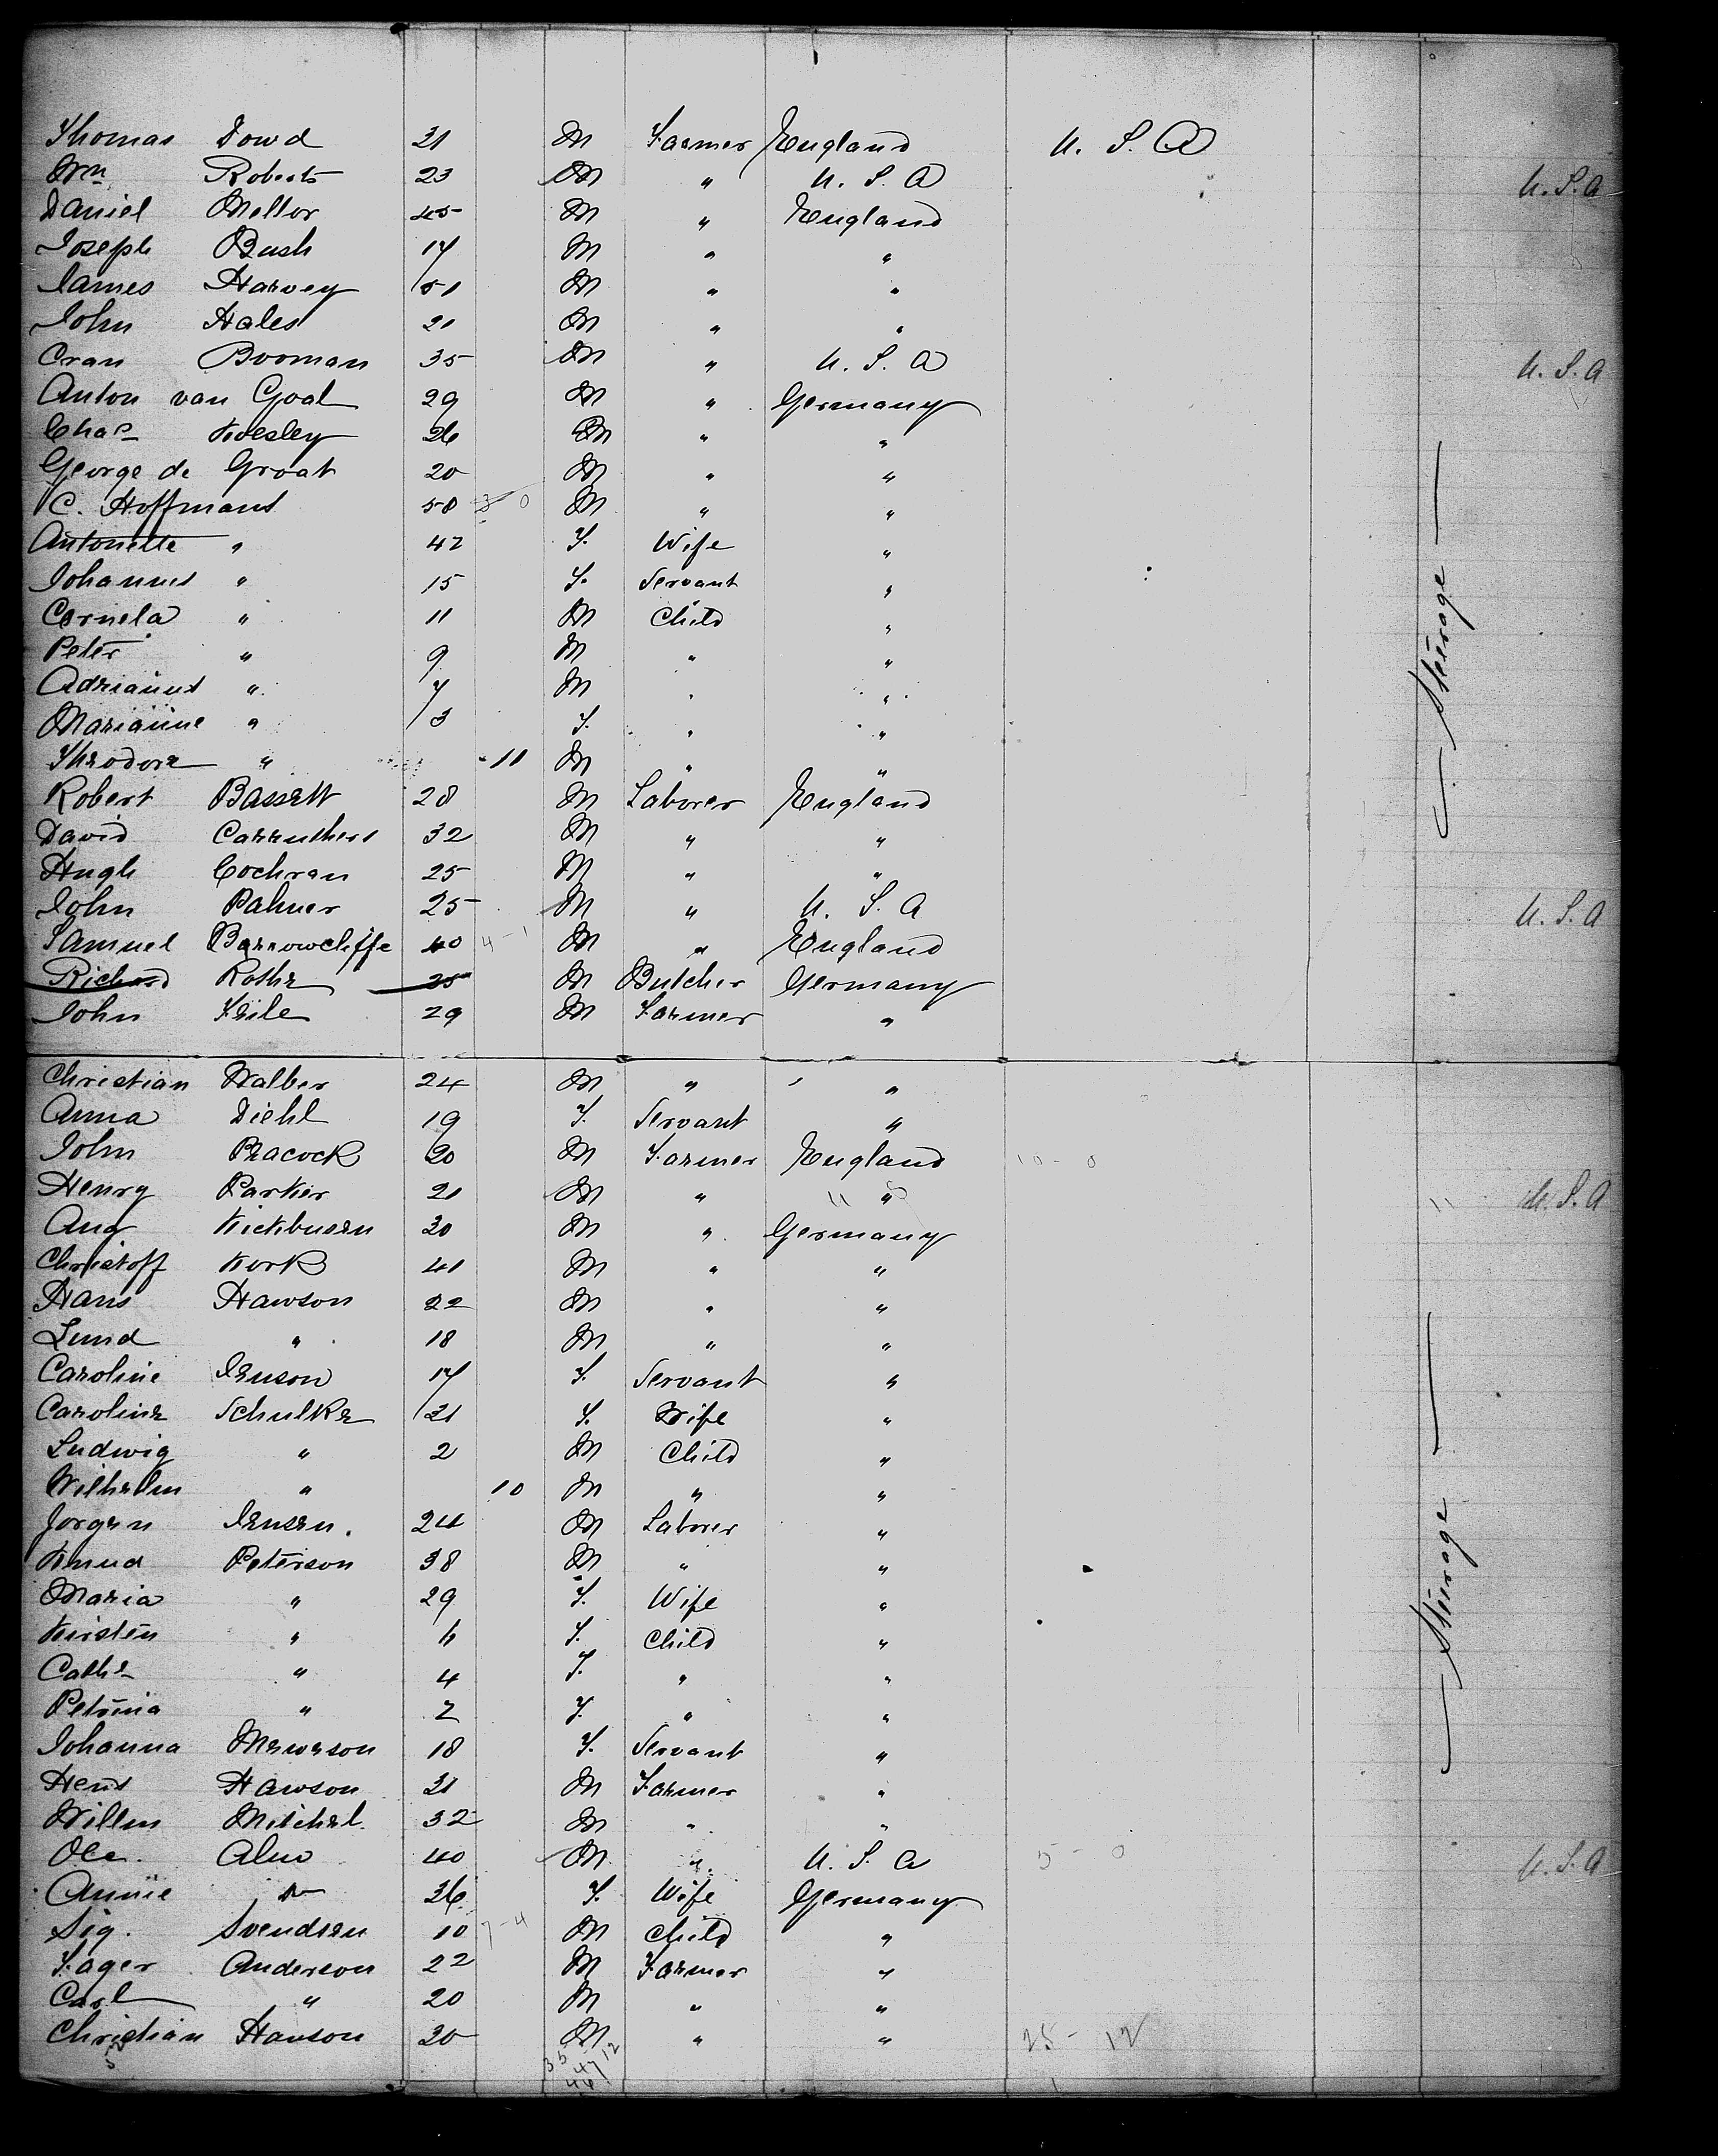 Thomas Dowd 21 M Farmer England U. S. A
Wm Roberts 23 M " U. S. A U. S. A
Daniel Mellor 45 M " England
Joseph Bush 17 M " "
James Harvey 51 M " "
John Hales 21 M " "
Cran Booman 35 M " U. S. A U. S. A
Anton van Goal 29 M " Germany
Chas Koesley 26 M " "
George de Groat 20 M " "
C. Hoffmans 50 M " "
Antonette " 42 F. Wife "
Johannes " 15 F. Servant "
Cornela " 11 M Child "
Peter " 9 M " "
Adrianus " 7 M " "
Marianne " 3 F. " "
Theodore " 11 M " "
Robert Bassett 28 M Laborer England
David Carruthers 32 M " "
Hugh Cochran 25 M " "
John Palmer 25 M " U. S. A U. S. A
Samuel Barrowcliffe 40 4-1 M " England
Richard Rothe 25 M Butcher Germany
John Keile 29 M Farmer "
Steerage
Christian Walber 24 M " "
Anna Diehl 19 F. Servant "
John Peacock 20 M Farmer England 10-0
Henry Parker 21 M " " U. S. A
Aug Kickbusen 30 M " Germany
Christoff Kork 41 M " "
Hans Hawson 22 M " "
Lund " 18 M " "
Caroline Jenson 17 F. Servant "
Caroline Schulke 21 F. Wife "
Ludwig " 2 M Child "
Wilhelm " 10 M " "
Jorgen Jensen. 24 M Laborer "
Knud Peterson 38 M " "
Maria " 29 F. Wife "
Kirsten " 6 F. Child "
Cathe " 4 F. " "
Petrina " 2 F. " "
Johanna Mewerson 18 F. Servant "
Hens Hawson 31 M Farmer "
Willm Mitchel. 32 M " "
Ole. Alno 40 M " U. S. A 5-0 U. S. A
Annie Do 36 F. Wife Germany
Sig. Svendsen 10 7-4 M Child "
Fager Anderson 22 M Farmer "
Carl " 20 M " "
Christian Hanson 30 M " " 25-12
Steerage